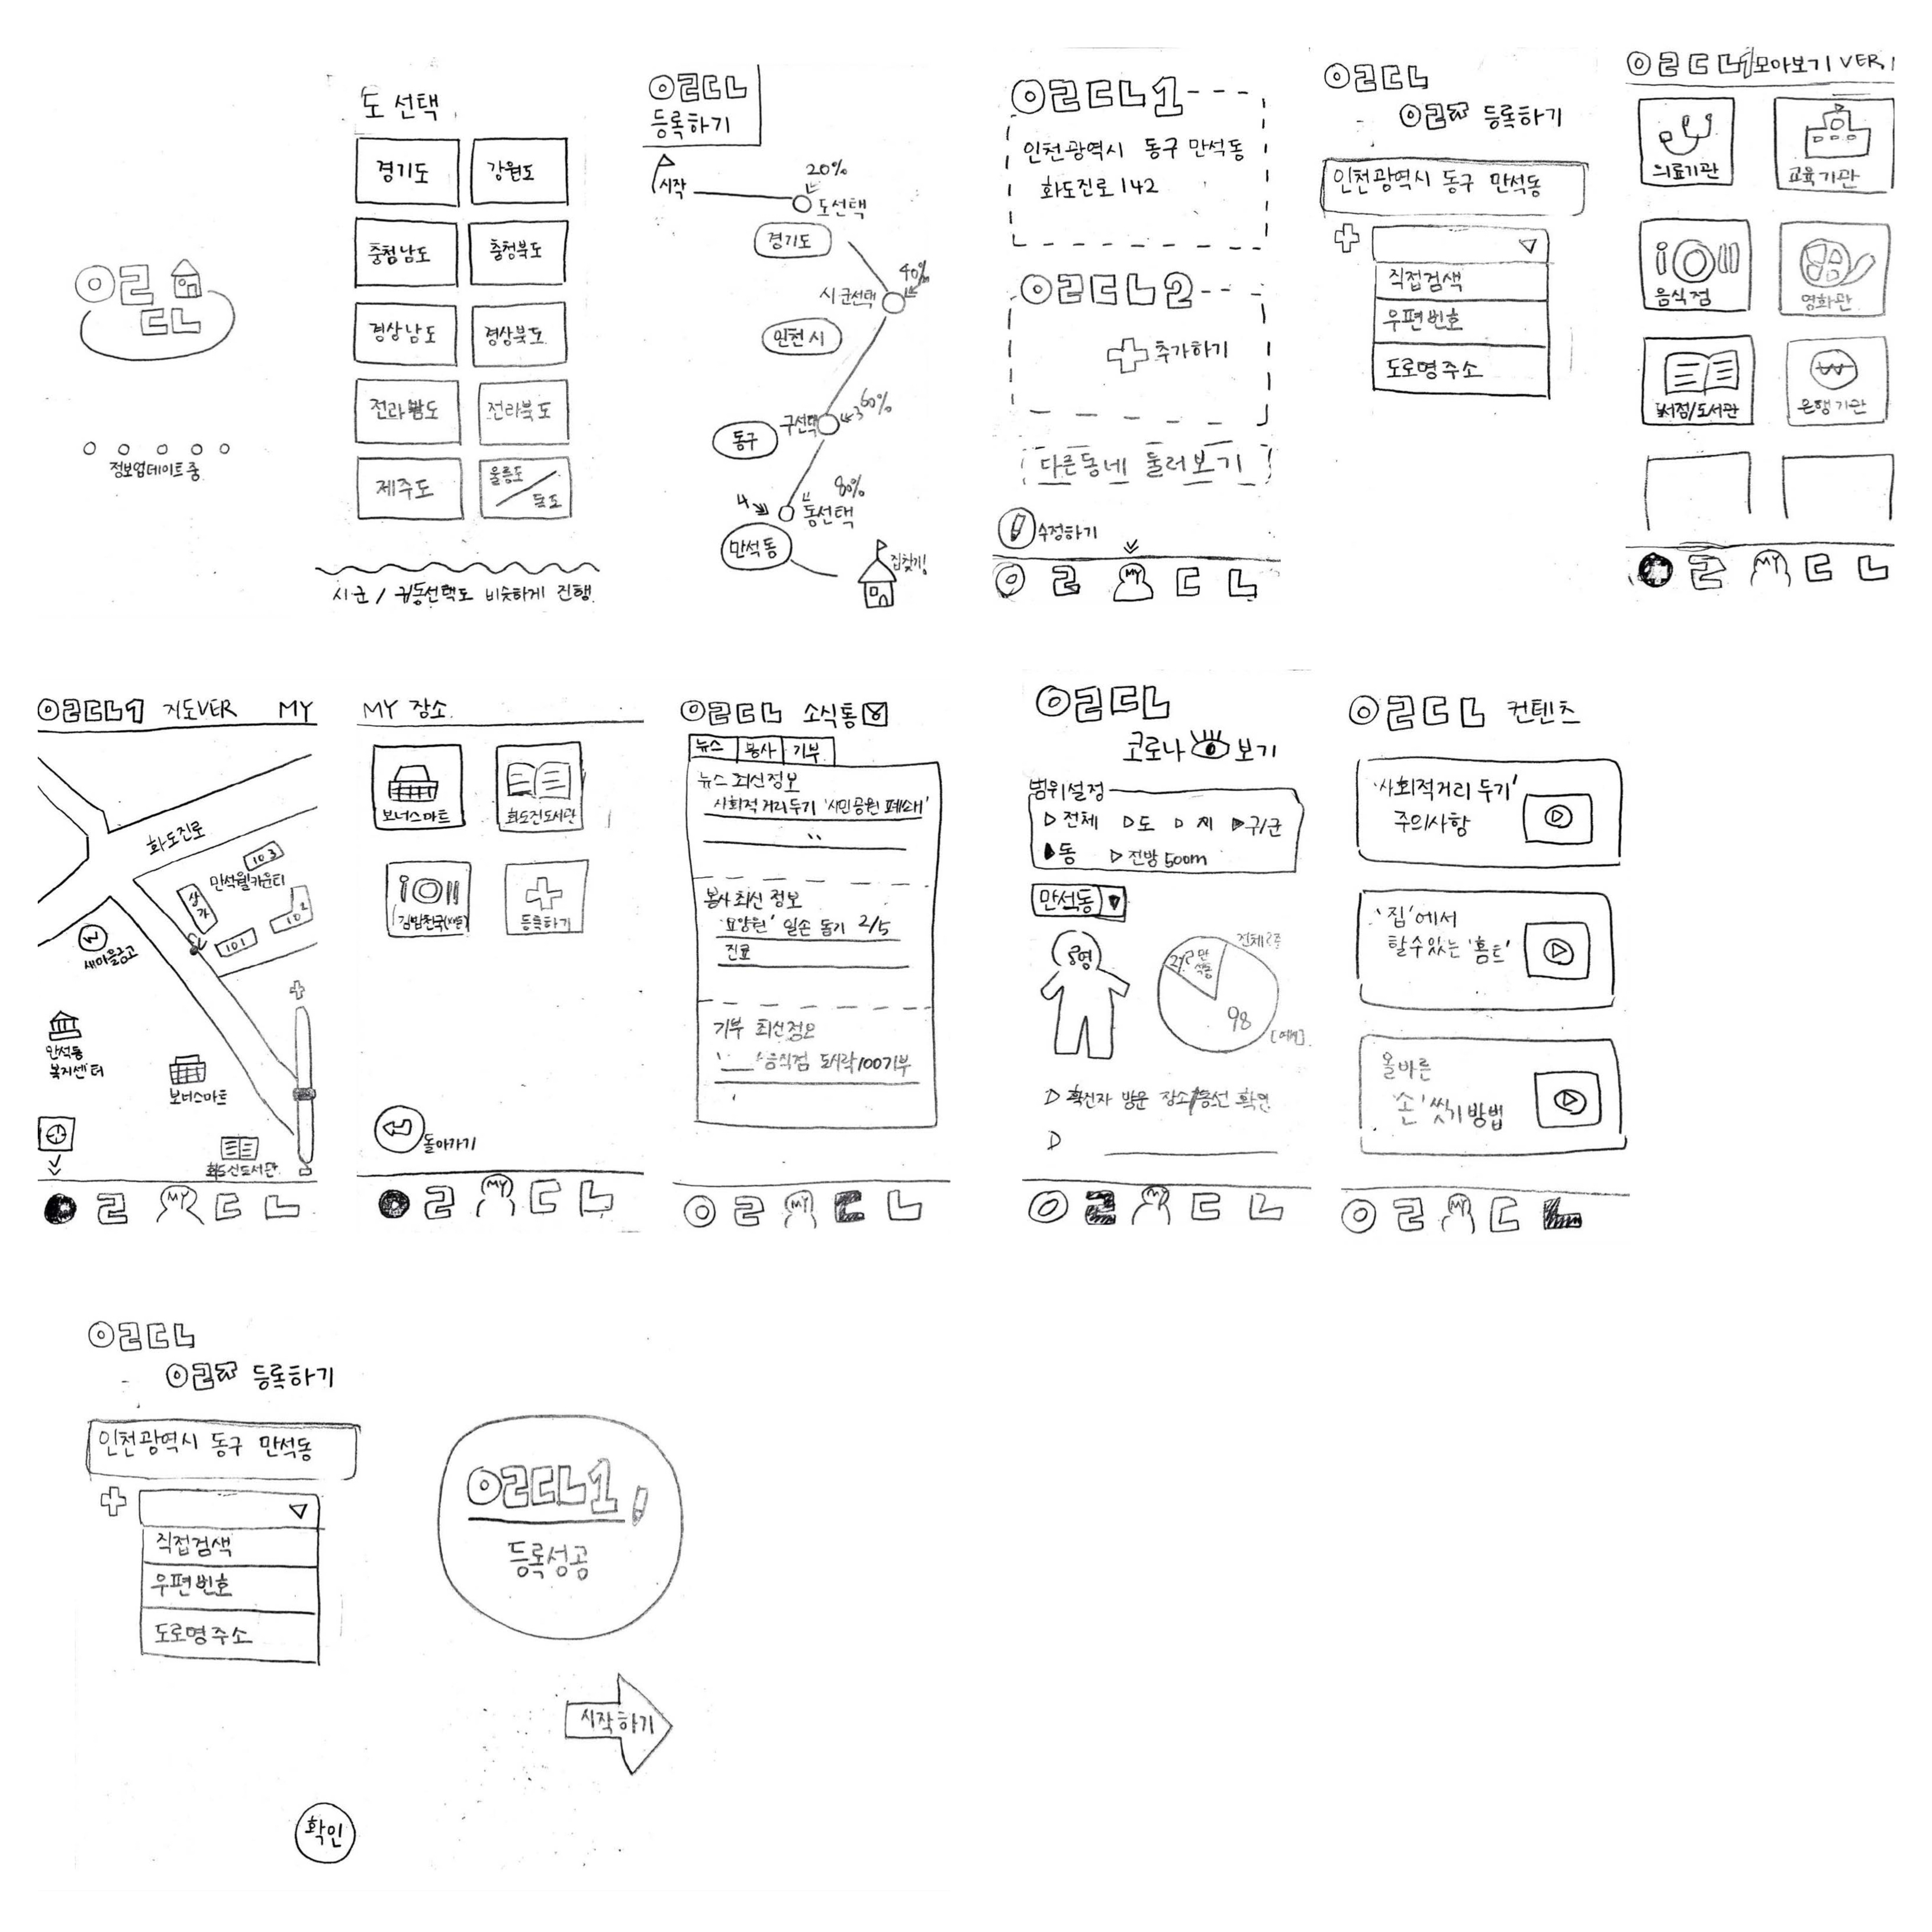 ㅇㄹ
ㄷㄴ
정보업데이트 중
도 선택
경기도
강원도
충청남도
충청북도
경상남도
경상북도
전라남도
전라북도
제주도
울릉도
독도
시군 / 구동선택도 비슷하게 진행
ㅇㄹㄷㄴ
등록하기
시작
20%
도선택
경기도
40%
시군선택
인천시
60%
구선택
동구
80%
동선택
만석동
집찾기!
ㅇㄹㄷㄴ1
인천광역시 동구 만석동
화도진로 142
ㅇㄹㄷㄴ2
추가하기
다른동네 둘러보기
수정하기
ㅇ ㄹ MY ㄷ ㄴ
ㅇㄹㄷㄴ
등록하기
인천광역시 동구 만석동
직접검색
우편번호
도로명주소
ㅇㄹㄷㄴ1모아보기 VER.1
의료기관
교육기관
음식점
영화관
서점/도서관
은행기관
ㄹ MY ㄷ ㄴ
ㅇㄹㄷㄴ1 지도VER MY
화도진로
103
만석웰카운티
상가
102
101
새마을금고
만석동
복지센터
보너스마트
화도진도서관
ㅇ ㄹ MY ㄷ ㄴ
MY 장소
보너스마트
화도진도서관
등록하기
돌아가기
ㅇ ㄹ MY ㄷ ㄴ
ㅇㄹㄷㄴ 소식통
뉴스 봉사 기부
뉴스 최신정보
사회적거리두기 '시민공원 폐쇄'
봉사 최신 정보
'요양원' 일손 돕기 2/5
진료
기부 최신정보
음식점 도시락100기부
ㅇ ㄹ MY ㄷ ㄴ
ㅇㄹㄷㄴ
코로나 보기
범위설정
전체 도 시 구/군
동 전방 500m
만석동
98
확진자 방문 장소/동선 확인
ㅇ ㄹ MY ㄷ ㄴ
ㅇㄹㄷㄴ 컨텐츠
'사회적거리 두기'
주의사항
'집'에서
할수있는 '홈트'
올바른
'손' 씻기 방법
ㅇ ㄹ MY ㄷ ㄴ
ㅇㄹㄷㄴ
등록하기
인천광역시 동구 만석동
직접검색
우편번호
도로명주소
확인
ㅇㄹㄷㄴ1
등록성공
시작하기